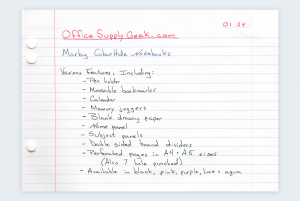 01-24
OfficeSupplyGeek.com
Marby ColorHide Notebooks
Various Features, Including:
- Pen holder
- Moveable bookmarks
- Calendar
- Memory joggers
- Blank drawing paper
- Name panel
- Subject panels
- Double sided board dividers
- Perforated pages in A4 + A5 sizes
(Also 7 hole punched)
- Available in black, pink, purple, lime + aqua